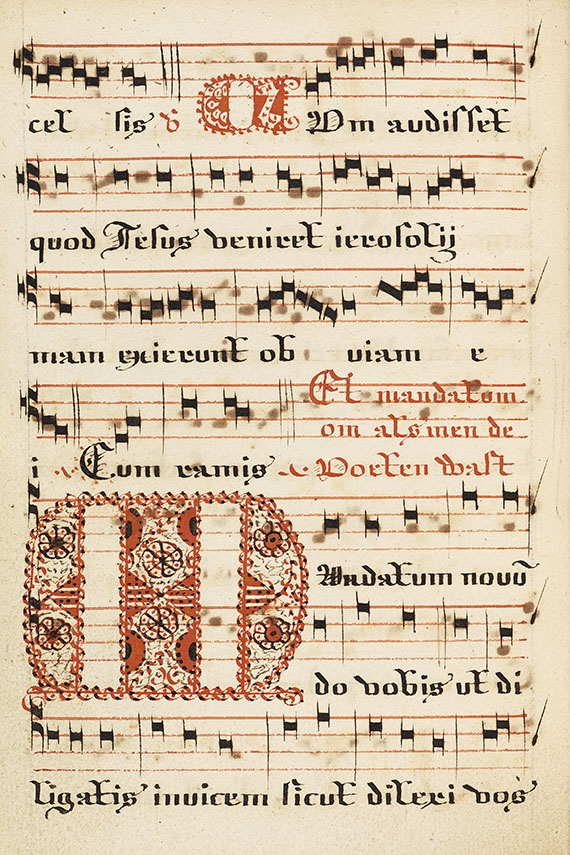 cel sis ꝟ CUm audisset
quod Jesus veniret ierosolij
mam exierunt ob viam e
Et mandatum
om als men de
i Cum ramis Voeten wast
MAndatum novũ
do vobis ut di
ligatis invicem sicut dilexi vos